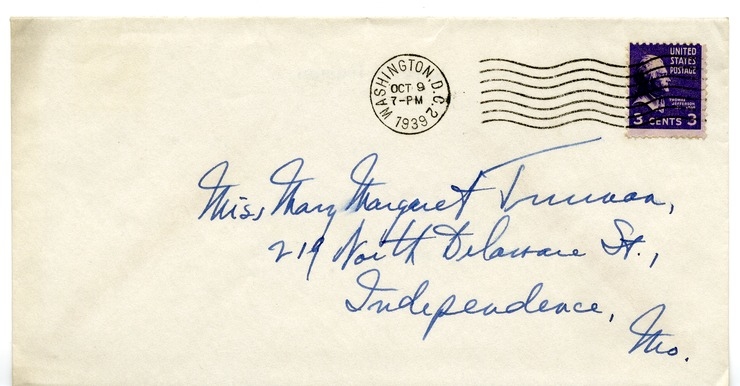 WASHINGTON, D.C. 2
OCT 9
7-PM
1939
UNITED
STATES
POSTAGE
THOMAS
JEFFERSON
3 CENTS 3
Miss Mary Margaret Truman,
219 North Delaware St.,
Independence,
Mo.